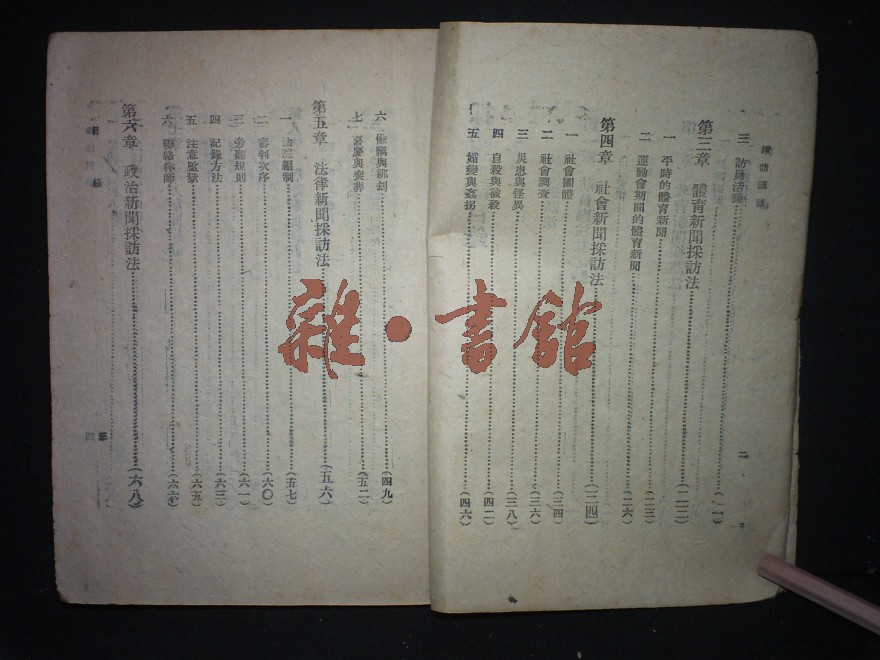 採訪講話
二
三 訪員活動…………(一一)
第三章 體育新聞採訪法…………(二二)
一 平時的體育新聞…………(二三)
二 運動會期間的體育新聞…………(二六)
第四章 社會新聞採訪法…………(三四)
一 社會團體…………(三四)
二 社會調查…………(三六)
三 災患與怪異…………(三八)
四 自殺與被殺…………(四二)
五 婚變與姦拐…………(四六)
六 偷竊與綁刦…………(四九)
七 喜慶與喪葬…………(五二)
第五章 法律新聞採訪法…………(五六)
一 法院編制…………(五七)
二 審判次序…………(六〇)
三 旁聽規則…………(六一)
四 記錄方法…………(六三)
五 注意監獄…………(六五)
六 聯絡律師…………(六六)
第六章 政治新聞採訪法…………(六八)
目錄
三
雜·書館